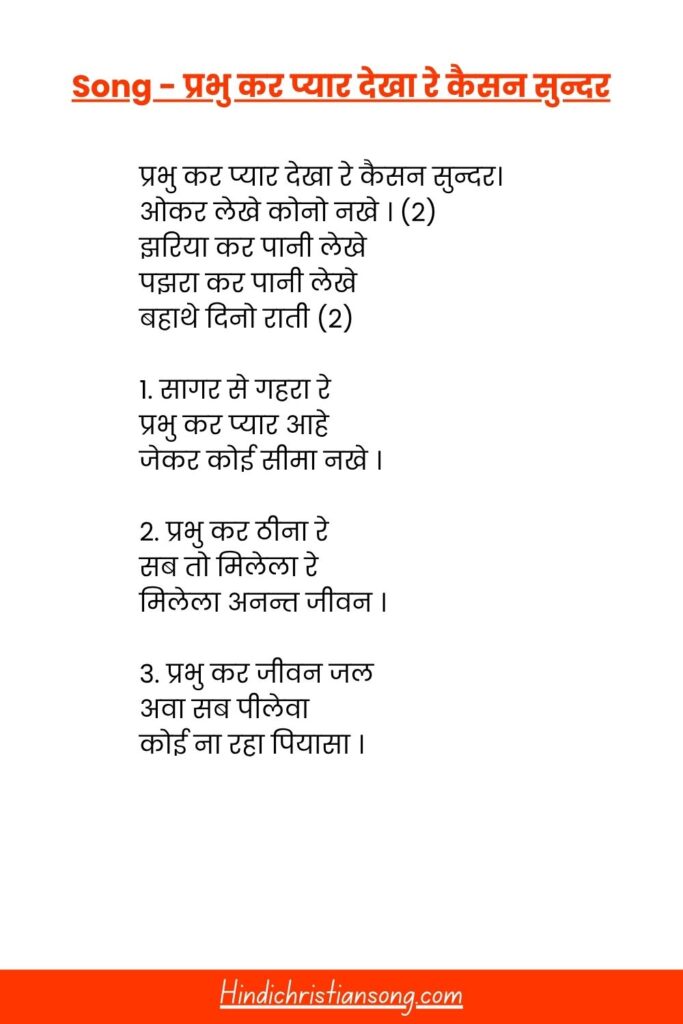 Song - प्रभु कर प्यार देखा रे कैसन सुन्दर
प्रभु कर प्यार देखा रे कैसन सुन्दर।
ओकर लेखे कोनो नखे । (2)
झरिया कर पानी लेखे
पझरा कर पानी लेखे
बहाथे दिनो राती (2)
1. सागर से गहरा रे
प्रभु कर प्यार आहे
जेकर कोई सीमा नखे ।
2. प्रभु कर ठीना रे
सब तो मिलेला रे
मिलेला अनन्त जीवन ।
3. प्रभु कर जीवन जल
अवा सब पीलेवा
कोई ना रहा पियासा ।
Hindichristiansong.com